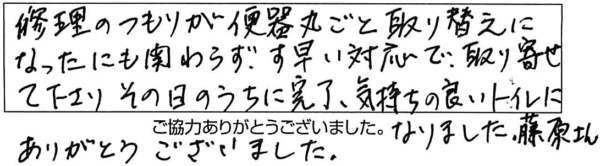 修理のつもりが便器丸ごと取り替えに
なったにも関わらず、す早い対応で、取り寄せ
て下さり その日のうちに完了、気持ちの良いトイレに
ご協力ありがとうございました。なりました。藤原さん
ありがとう ございました。